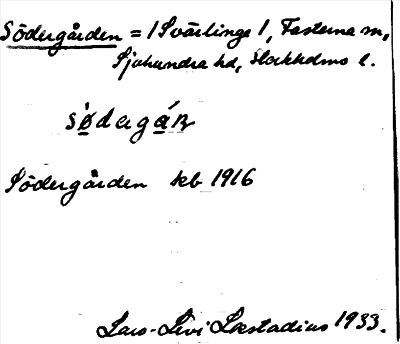 Södergården = 1 Svärlinge 1, Fasterna sn,
Sjuhundra hd, Stockholms l.
Södergården kb 1916
Lars-Levi Læstadius 1933.